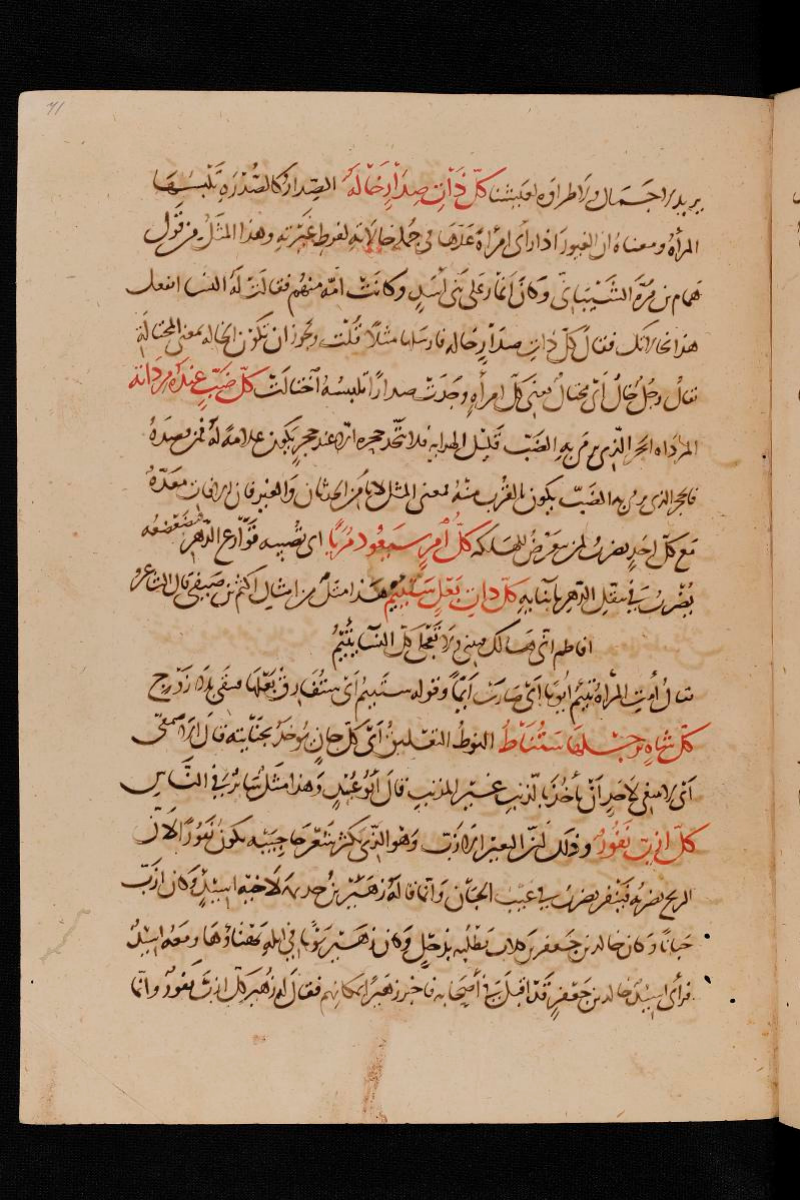 كلّ ذَات صِدَارٍ خَالَةٌ الصِّدار كالصُّدْرَة تَلْبسُهَا
المرأة ومعناه ان الغيور اذا رأى امرأة عدّها في جملة خالاته لفرط غَيْرته وهذا المثَل من قَول
همام بن مُرّة الشَّيْبَانيّ وكان اغار على بنى أسَدٍ وكانتْ امّه منهُم فقالت لَهُ النسا اتفعل
هذا بخالاتك فقال كلّ ذات صِدَارٍ خاله فارسلها مثلًا قُلْت ويجوز ان تكون الخاله بمعنى المختالَة
يقالُ رجُل خالٌ أى مختالٌ فمعنى كلّ امرأةٍ وجَدَتْ صدارًا تلبسُهُ اختالَتْ كلّ ضَبّ عِندَهُ مِرْدَاتُه
المرْداه الحجر الّذى يرمى بهِ الضَبّ قَليل الهدايه فلا تتّخذ جحره الّا عند حجرٍ يكون علامةً لَهُ فمن قصدَهُ
فالحجر الذى يرمى به الضَبّ يكون بالقُرْب منهُ فمعنى المثل لا تأمن الحدثان والغير فان الافات معَدّةٌ
مَع كلّ احدٍ يضربُ لمن يتعرّضُ للهلكه كلّ امْرٍ سَيَعُود مُرَيًّا اى تُصيبه قَوارع الدّهر فتضعضعه
يُضْربُ فى تنقل الدّهر بابنَايهِ كلّ ذات بَعْلٍ سَتَئِيمُ هَذا مثَلٌ من امثال اكثم بن صَيفىّ قال الشاعر
افاطم انّى هَالك فتبينى ولا تَجْزعى كلّ النسَآ يَئِيْمُ
يقالُ أمَتِ المرْأة تَئِيْمُ أيُومًا اى صَارَتْ ايّمًا وقوله ستَئيمُ اى ستُفَارقُ بَعْلها فتبقَى بلَا زَوْج
كلّ شاةٍ برجْلهَا سَتُنَاطُ النوطُ التعْليقُ أى كلّ جانٍ يُوخذُ بجنَايته قال الاصمعّى
أى لا ينبغى لاحَدٍ أنْ يأخُذَ بالذنبِ غَيْر المذنب قالَ أبُو عُبَيْدٍ وَهذا مثَلٌ سَائرٌ فى النَّاس
كلّ ازَبّ نَفُورٌ وذلك أنّ البعير الازبّ وهُو الّذى يكثر شَعْر حاجبَيْه يكونُ نفُورًا لانّ
الريح تضربُه فيَنْفر يضربُ فى عَيْب الجَبَان وانّما قالهُ زهَيْرُ بنُ جذيمة لاخيْهِ أسِيدٍ وكان ازَبّ
جَبانًا وكان خالد بن جَعفر بن كلاب يَطْلبُه بذَحْلٍ وكان زهَيْر يَوْمًا فى ابلهِ يَهْنَاؤهَا ومعَهُ أسِيدٌ
فرأى أسِيدٌ خالد بن جَعفرٍ قَدْ اقبلَ فى أصحَابه فاخبر زهَيْرًا بمكانهم فقالَ لهُ زُهَيْر كلّ ازبّ نَفورٌ وانّما